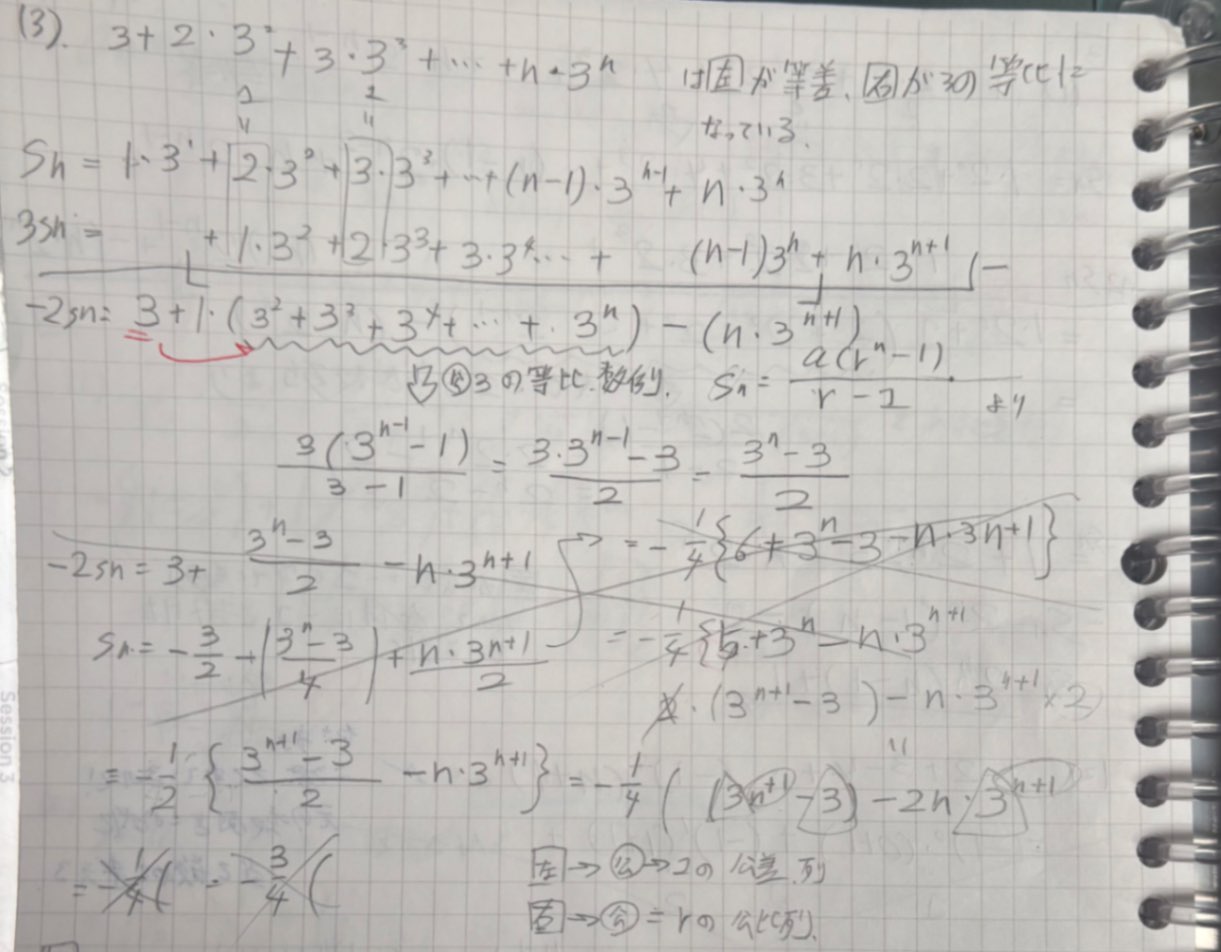 (3). 3 + 2・3² + 3・3³ + ‥‥ + n・3ⁿ は左が等差、右が3の等比に
なっている.
Sn = 1・3¹ + 2・3² + 3・3³ + ‥ + (n-1)・3ⁿ⁻¹ + n・3ⁿ
3Sn = + 1・3² + 2・3³ + 3・3⁴ ‥‥ + (n-1)3ⁿ + n・3ⁿ⁺¹ (-
-2Sn = 3 + 1・(3² + 3³ + 3⁴ + ‥‥ + ・3ⁿ) - (n・3ⁿ⁺¹)
公3の等比数列. Sn = a(rⁿ - 1) / r - 1 より
3(3ⁿ⁻¹ - 1) / 3 - 1 = 3・3ⁿ⁻¹ - 3 / 2 = 3ⁿ - 3 / 2
-2Sn = 3 + 3ⁿ - 3 / 2 - n・3ⁿ⁺¹ → = - 1/4 {6 + 3ⁿ - 3 - n・3n+1}
Sn = - 3/2 - (3ⁿ - 3 / 4) + n・3n+1 / 2 = - 1/4 {5 + 3ⁿ - n・3ⁿ⁺¹
2・(3ⁿ⁺¹ - 3) - n・3ⁿ⁺¹ × 2
= - 1/2 { 3ⁿ⁺¹ - 3 / 2 - n・3ⁿ⁺¹ } = - 1/4 ( (3ⁿ⁺¹ - 3) - 2n・3ⁿ⁺¹
= - 1/4 ( = - 3/4 (
左 → 公 → 1の公差列
右 → 公 = rの公比列.
Session 3